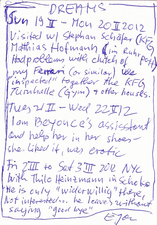 DREAMS
Sun 19 II - Mon 20 II 2012
Visited w/ Stephan Schäfer KFG
Matthias Hofmann (in
Had problems with clutch of
my Ferrari (or similar) we
"inspected" together the KFG
Turnhalle (Gym) + other houses.
Tues 21 II - Wed 22 II 12
I am Beyonce's assistent
and help her in her shoes -
she liked it, was erotic
Fri 2 III to Sat 3 III 2012 NYC
With Thilo Heinzmann in Scheibe
He is only "widerwillig" there,
Not interested... he leaves without
saying "good bye"